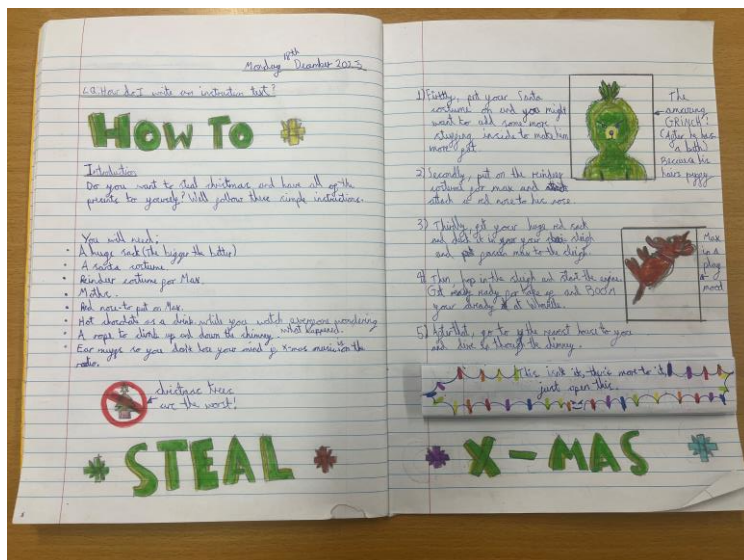 Monday 18th December 2023
L.Q. How do I write an instruction text?
HOW TO
Introduction
Do you want to steal christmas and have all of the
presents to yourself? Well follow these simple instructions.
You will need:
A huge sack (the bigger the better)
A santa costume.
Reindeer costume for Max.
Red nose to put on Max.
Hot chocolate as a drink while you watch everyones wondering
what happened.
A rope to climb up and down the chimney.
Ear muffs so you don't lose your mind if x-mas music is on the
radio.
christmas trees
are the worst!
STEAL
1) Firstly, put your Santa
costume on and you might
want to add some more
stuffing inside to make him
more fat.
The
amazing
GRINCH!
(After he has
a bath)
Because his
hairs puffy.
2) Secondly, put on the reindeer
costume for max and
attach a red nose to his nose.
3) Thirdly, get your huge red sack
and it in your sleigh
and max to the sleigh.
Max
in a
play
mood
4) Then, hop in the sleigh and start the engine.
Get ready for take off and BOOM
your already at
5) After that, go to the nearest house to you
and dive through the chimney.
This isn't it, there's more to it,
just open this.
X-MAS